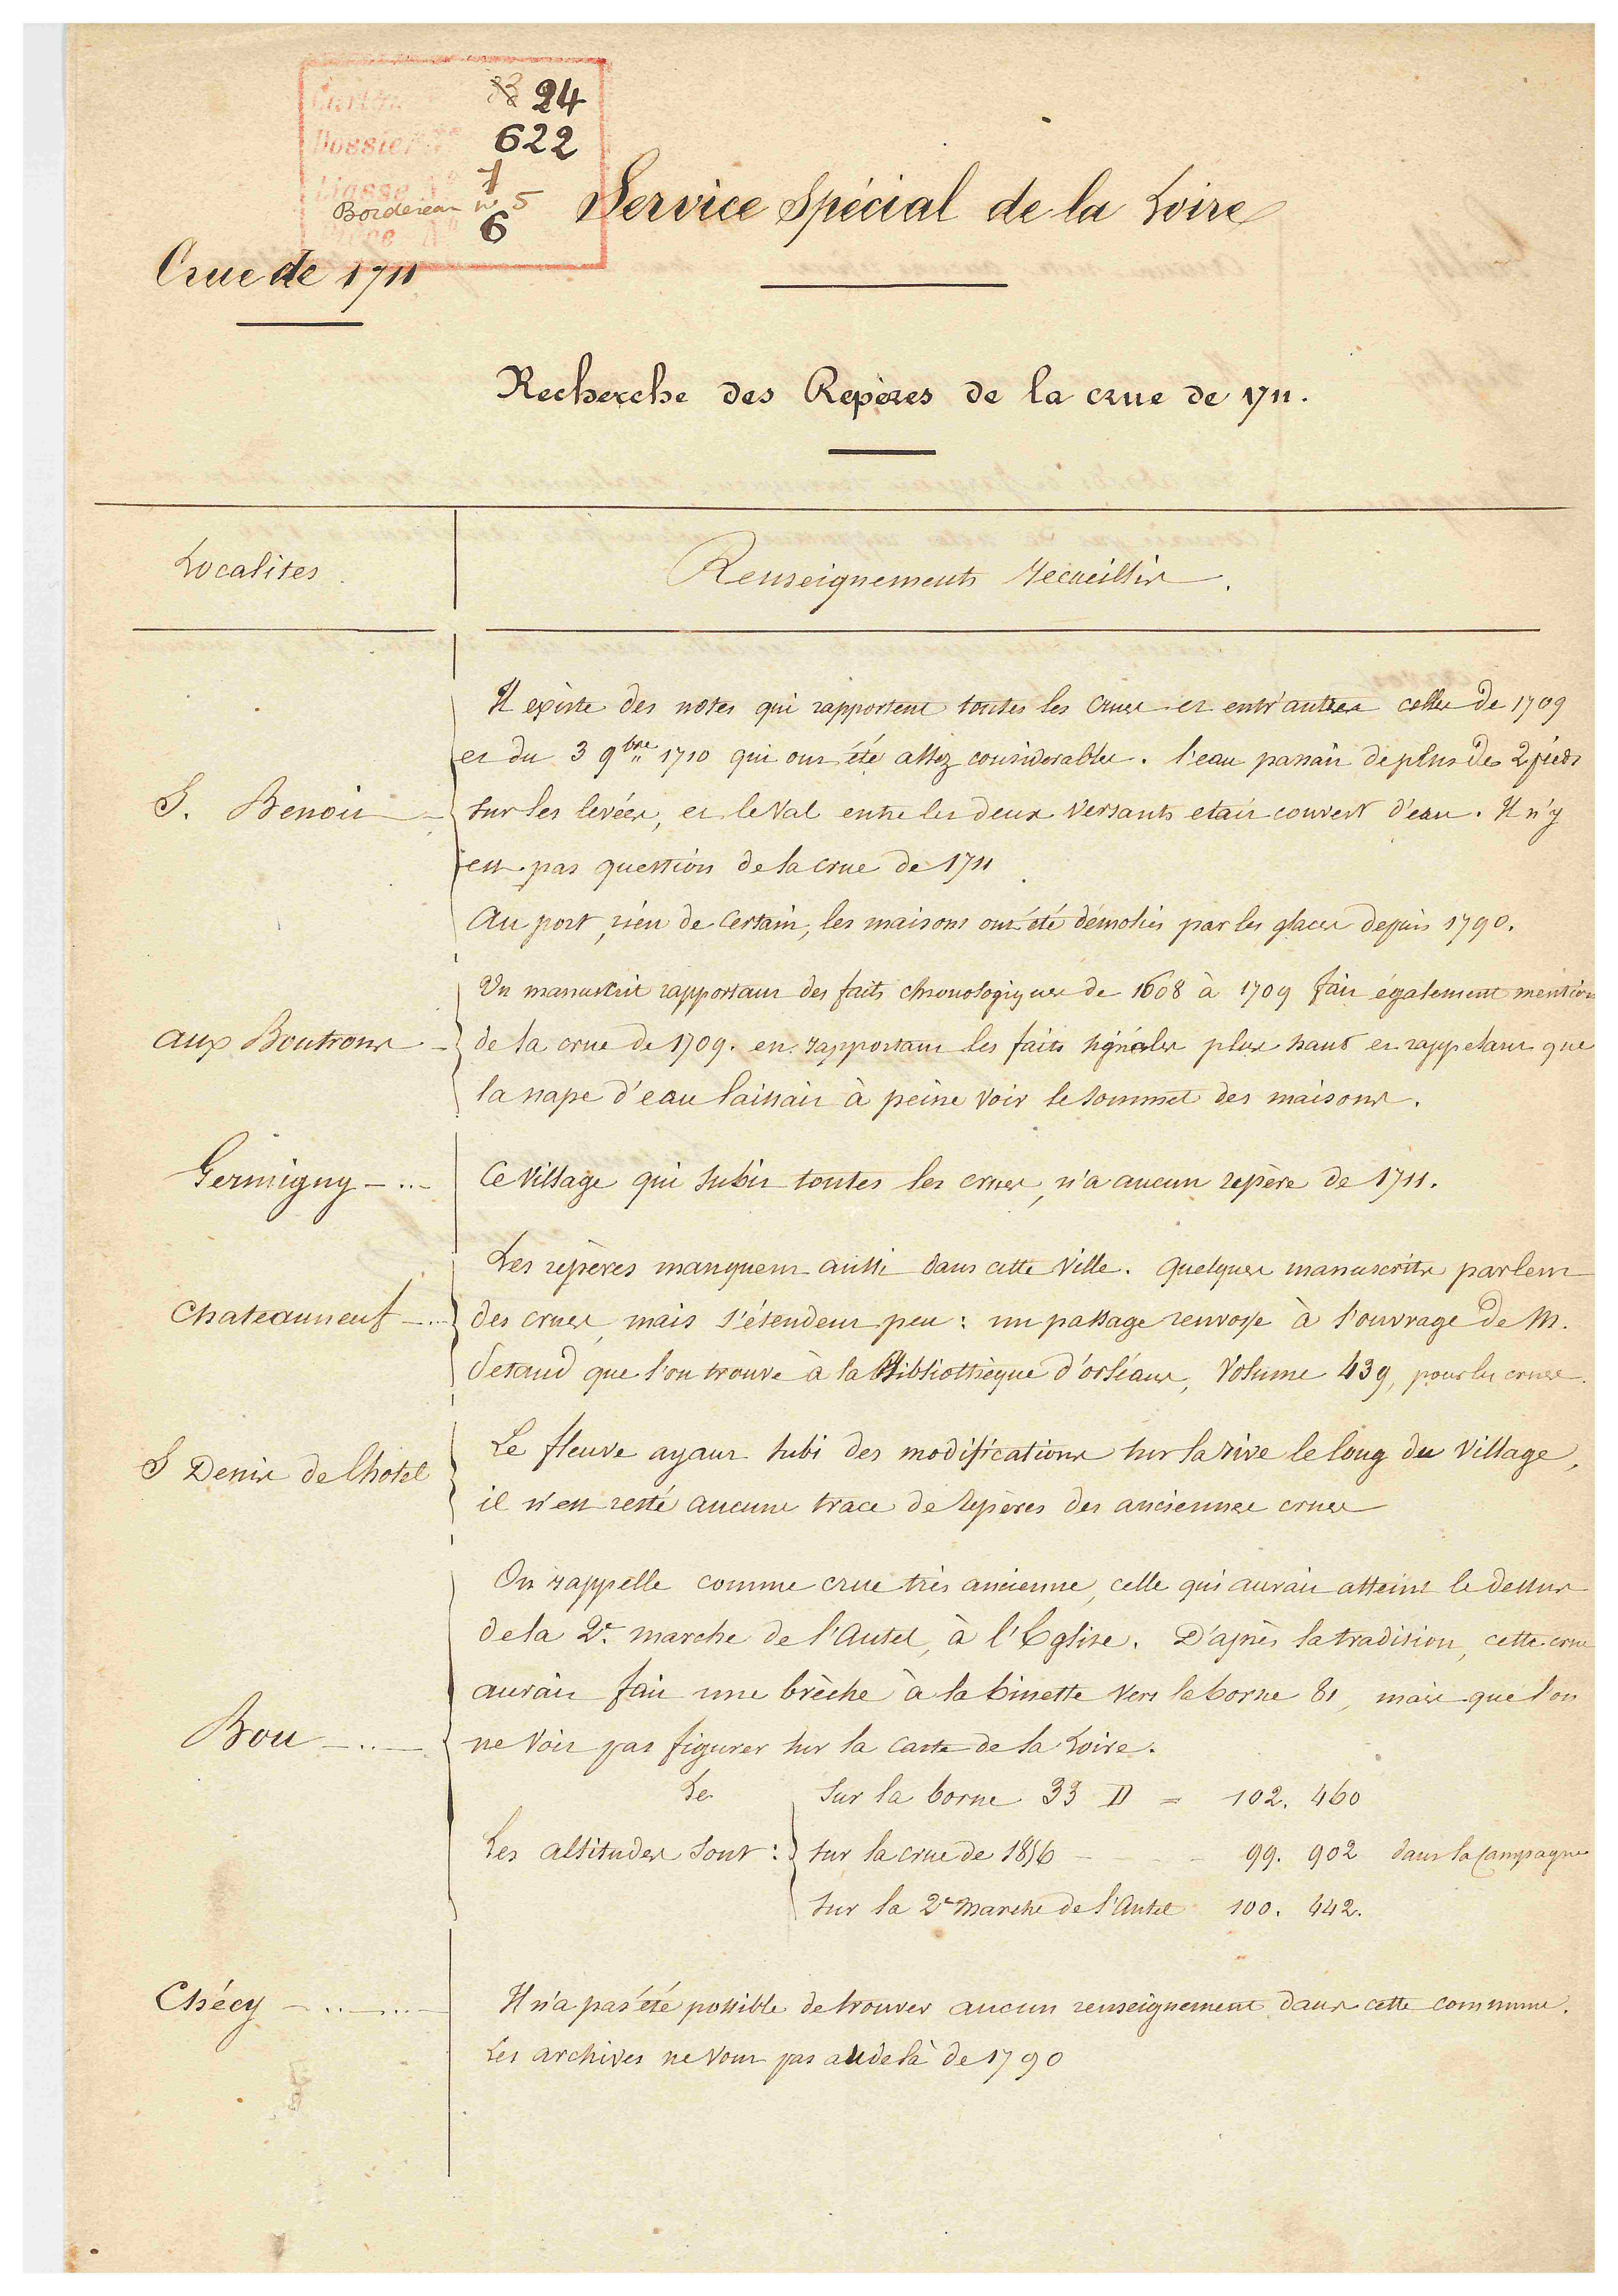 Carton 24
Dossier N° 622
Liasse N° 1
Bordereau n° 5
Pièce N° 6
Service Spécial de la Loire
Crue de 1711
Recherche des Repères de la crue de 1711.
Localités
Renseignements recueillis.
Il existe des notes qui rapportent toutes les crues et entr'autres celles de 1709
et du 3 9bre 1710 qui ont été assez considerables. l'eau passait de plus de 2 pieds
S. Benoit
sur les levées, et le Val entre les deux Versants etait couvert d'eau. Il n'y
est pas question de la crue de 1711
Au port, rien de Certain, les maisons ont été démolies par les glaces depuis 1790.
Un manuscrit rapportant des faits chronologiques de 1608 à 1709 fait également mention
aux Boutrons
de la crue de 1709. en rapportant les faits signalés plus haut et rappelant que
la nape d'eau laissait à peine voir le sommet des maisons.
Germigny
Ce Village qui subit toutes les crues, n'a aucun repère de 1711.
Les repères manquent aussi dans cette Ville. Quelques manuscrits parlent
Chateauneuf
des crues, mais s'étendent peu : un passage renvoye à l'ouvrage de M.
que l'on trouve à la Bibliothèque d'orléans, Volume 439, pour les crues.
Le fleuve ayant subi des modifications sur la rive le long du Village,
S Denis de lhotel
il n'est resté aucune trace de repères des anciennes crues
On rappelle comme crue très ancienne, celle qui aurait atteint le dessus
de la 2e. marche de l'Autel, à l'Eglise. D'après la tradition, cette crue
aurait fait une brèche à la binette Vers la borne 81, mais que l'on
Bou
ne Voit pas figurer sur la carte de la Loire.
Le
Sur la borne 33 D = 102. 460
Les altitudes sont : sur la crue de 1856 99. 902 dans la Campagne
sur la 2e Marche de l'Autel 100. 442.
Chécy
Il n'a pas été possible de trouver aucun renseignement dans cette commune.
Les archives ne Vont pas au delà de 1790